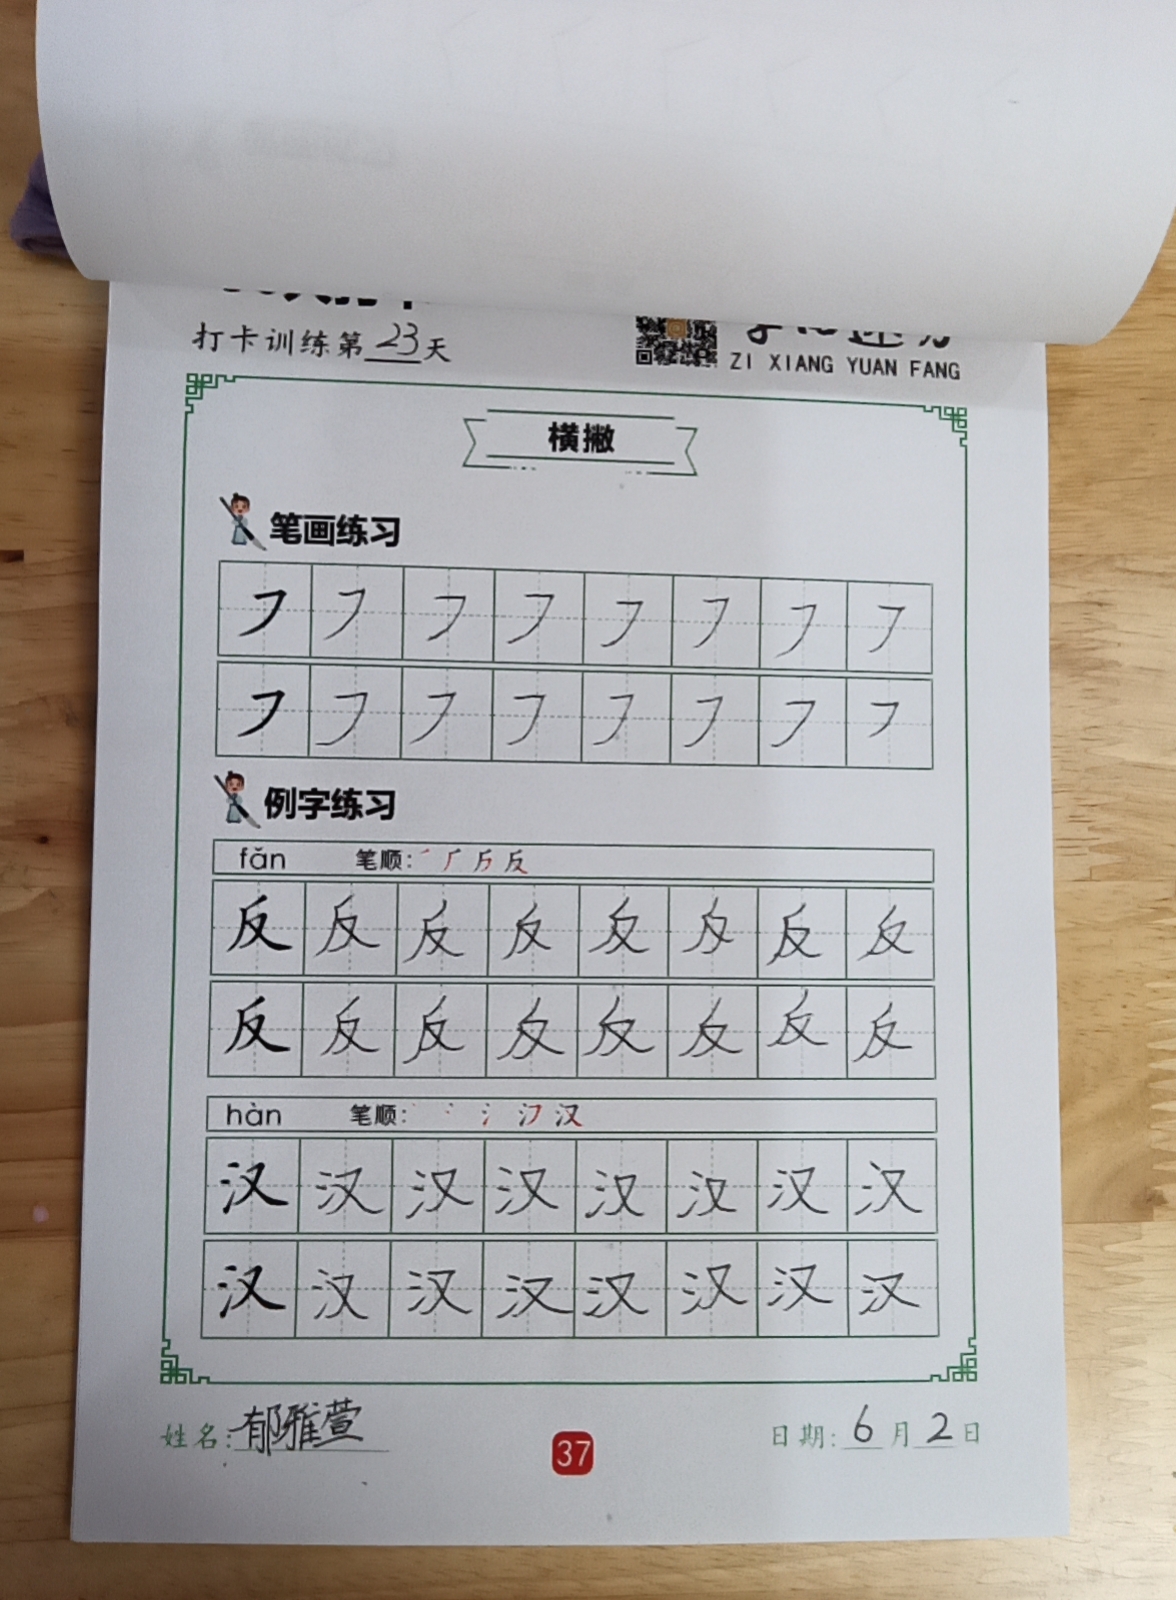 打卡训练第23天
ZI XIANG YUAN FANG
横撇
笔画练习
㇇㇇㇇㇇㇇㇇㇇㇇
㇇㇇㇇㇇㇇㇇㇇㇇
例字练习
fǎn 笔顺: 反
反反反反反反反反
反反反反反反反反
hàn 笔顺: 汉
汉汉汉汉汉汉汉汉
汉汉汉汉汉汉汉汉
姓名:郁雅萱
37
日期:6月2日